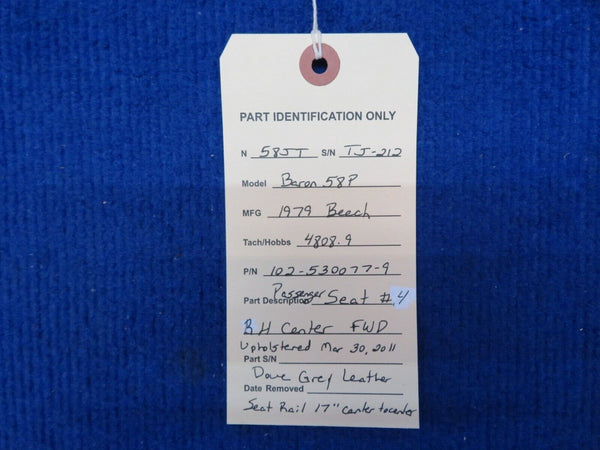 PART IDENTIFICATION ONLY
N 58JT S/N TJ-212
Model Baron 58P
MFG 1979 Beech
Tach/Hobbs 4808.9
P/N 102-530077-9
Part Description Passenger Seat #4
RH Center FWD
Upholstered Mar 30, 2011
Part S/N
Dove Grey Leather
Date Removed
Seat Rail 17" center to center